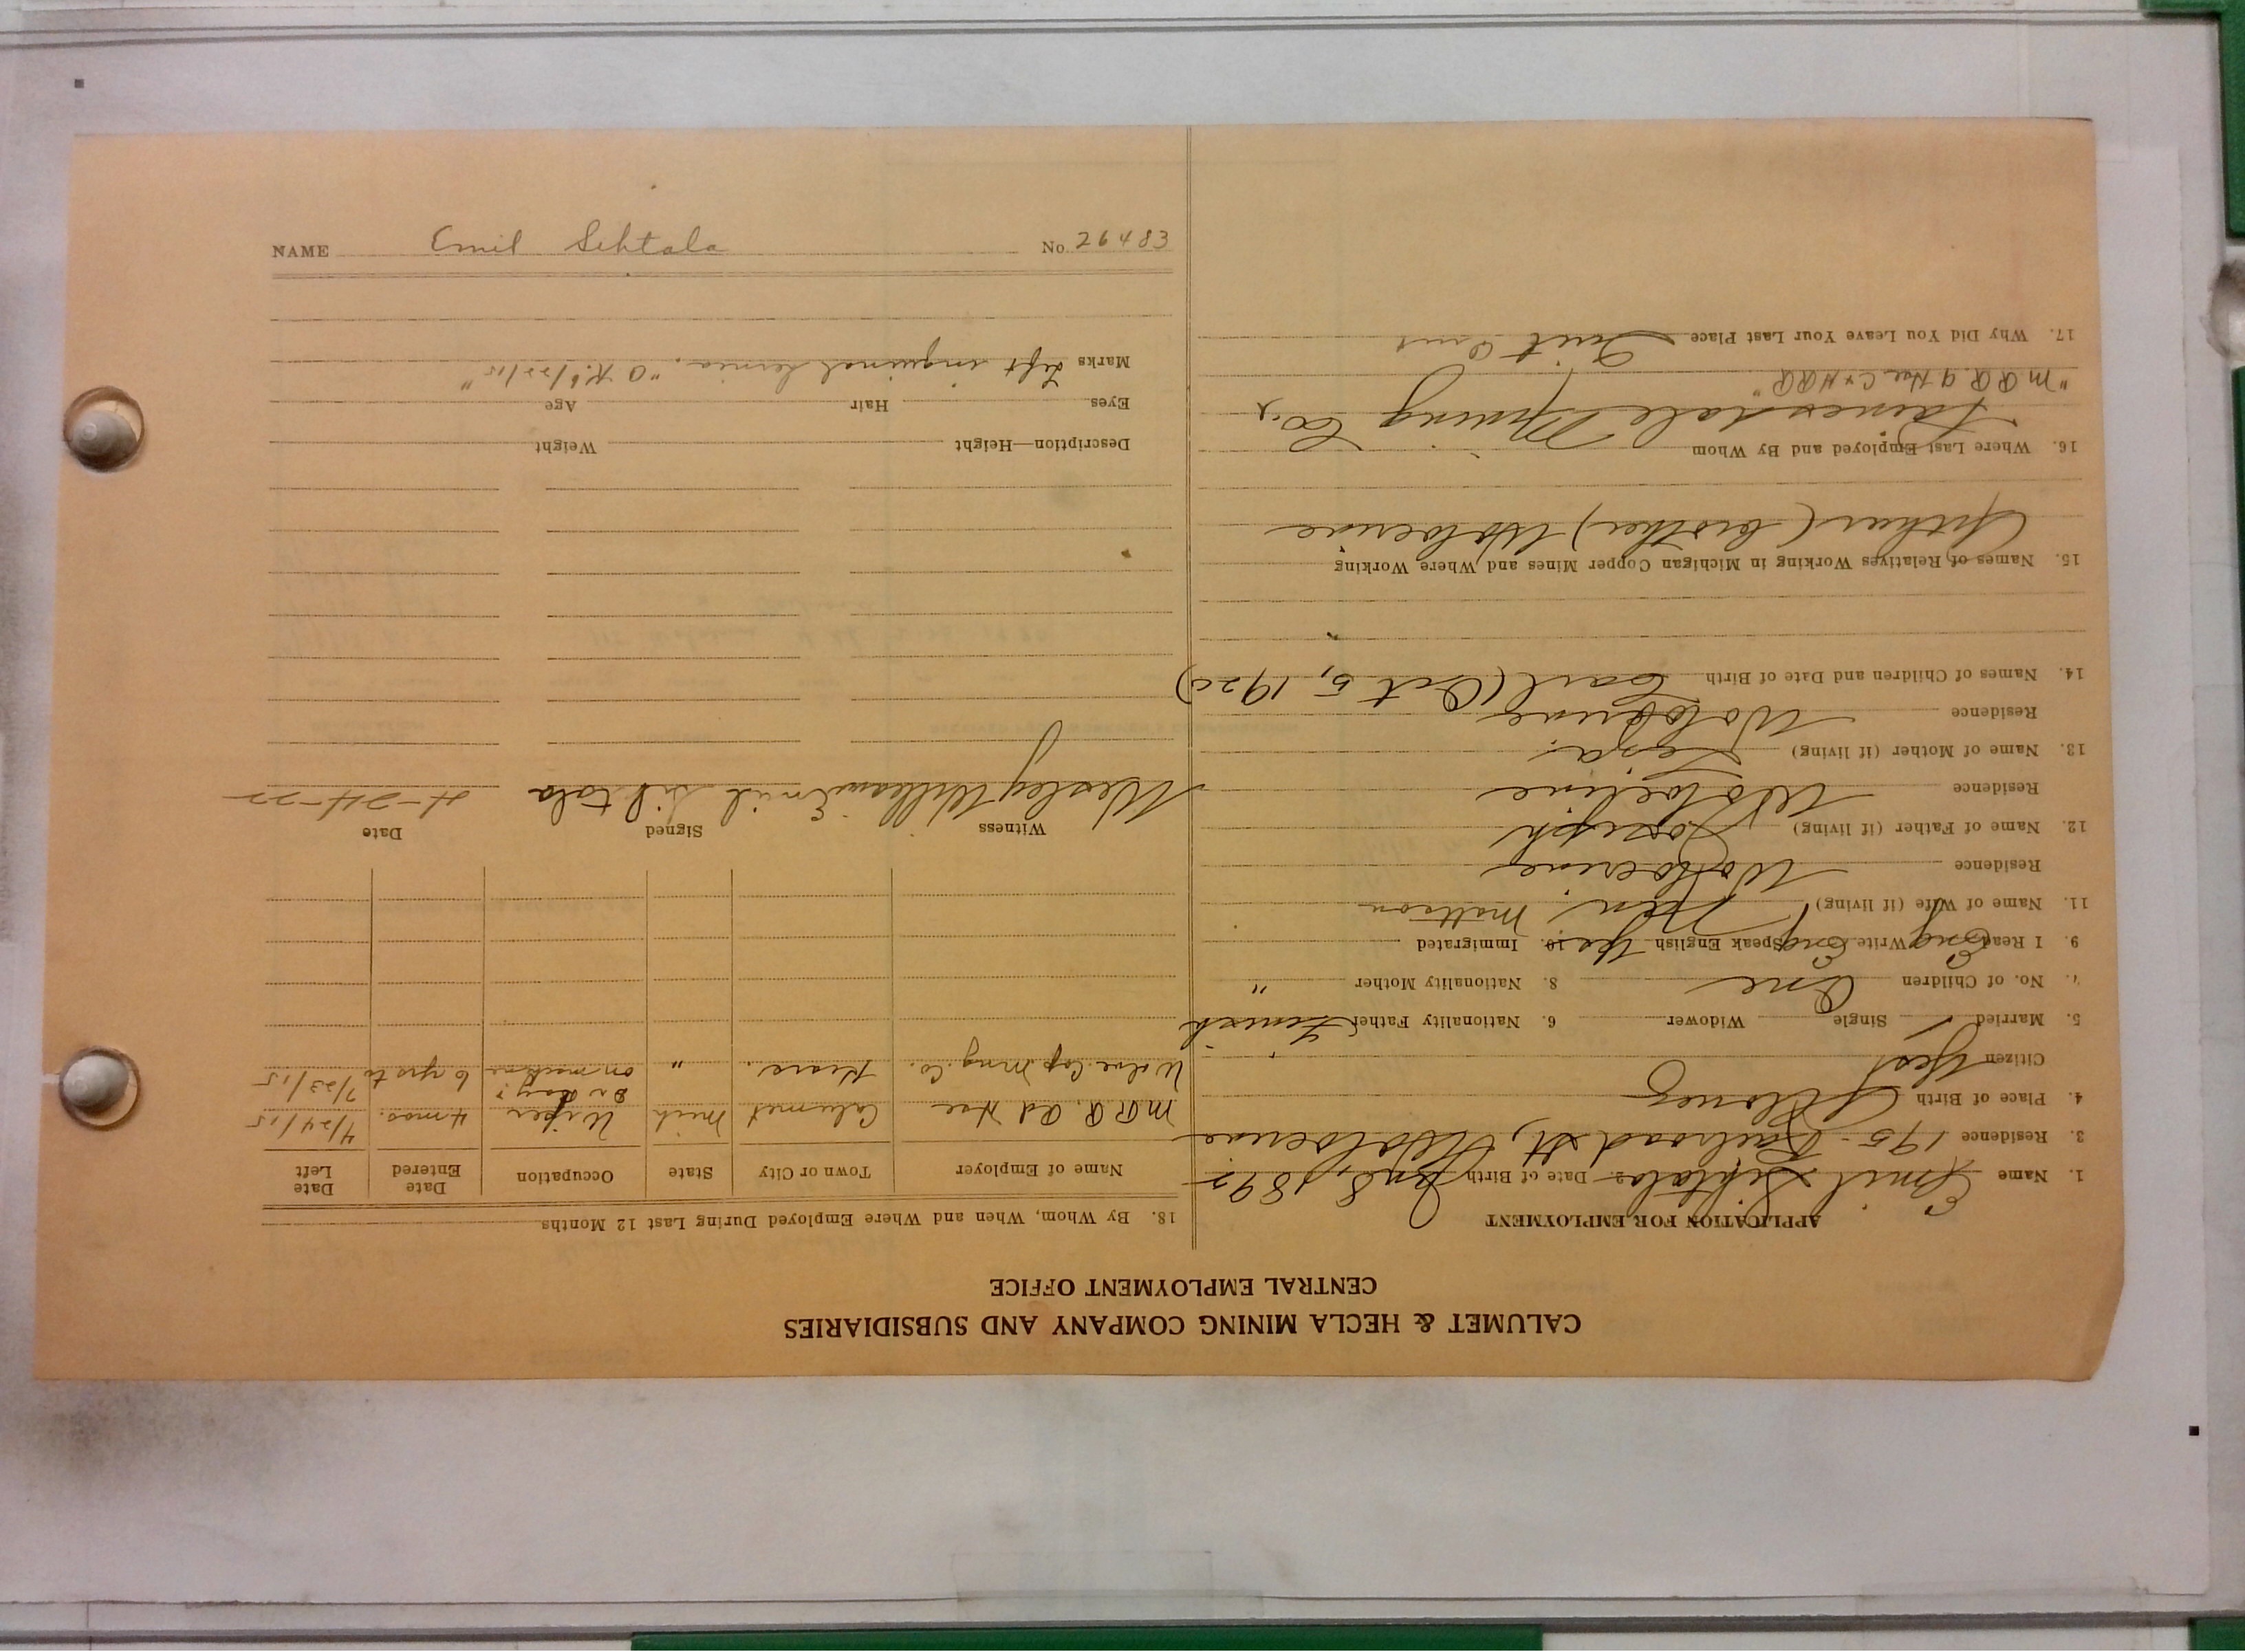 CALUMET & HECLA MINING COMPANY AND SUBSIDIARIES
CENTRAL EMPLOYMENT OFFICE
APPLICATION FOR EMPLOYMENT
1. Name Emil Sihtala 2. Date of Birth Jan 8, 1892
3. Residence 195 - Railroad St, Wolverine
4. Place of Birth Allouez
Citizen Yes
5. Married ✓ Single Widower 6. Nationality Father Finish
7. No. of Children One 8. Nationality Mother "
9. I Read Eng Write Eng Speak English Yes 10. Immigrated
11. Name of Wife (if living) Mattson
Residence Wolverine
12. Name of Father (if living) Joseph
Residence Wolverine
13. Name of Mother (if living)
Residence Wolverine
14. Names of Children and Date of Birth Carl (Oct 5, 1920)
15. Names of Relatives Working in Michigan Copper Mines and Where Working
Arthur (brother) Wolverine
16. Where Last Employed and By Whom
Painesdale Mining Co.,
17. Why Did You Leave Your Last Place Quit
18. By Whom, When and Where Employed During Last 12 Months
Name of Employer Town or City State Occupation Date Entered Date Left
M.R.R. Calumet Mich Wiper 4 mos. 4/24/15
Wolv. Cop. Mng. Co. Kears. " on machine 6 yrs to 7/23/15
Witness Signed Date
Wesley Williams Emil Sihtala 4-24-22
Description—Height Weight
Eyes Hair Age
Marks Left inguinal hernia, "O.K. 6/22/15"
NAME Emil Sihtala No. 26483